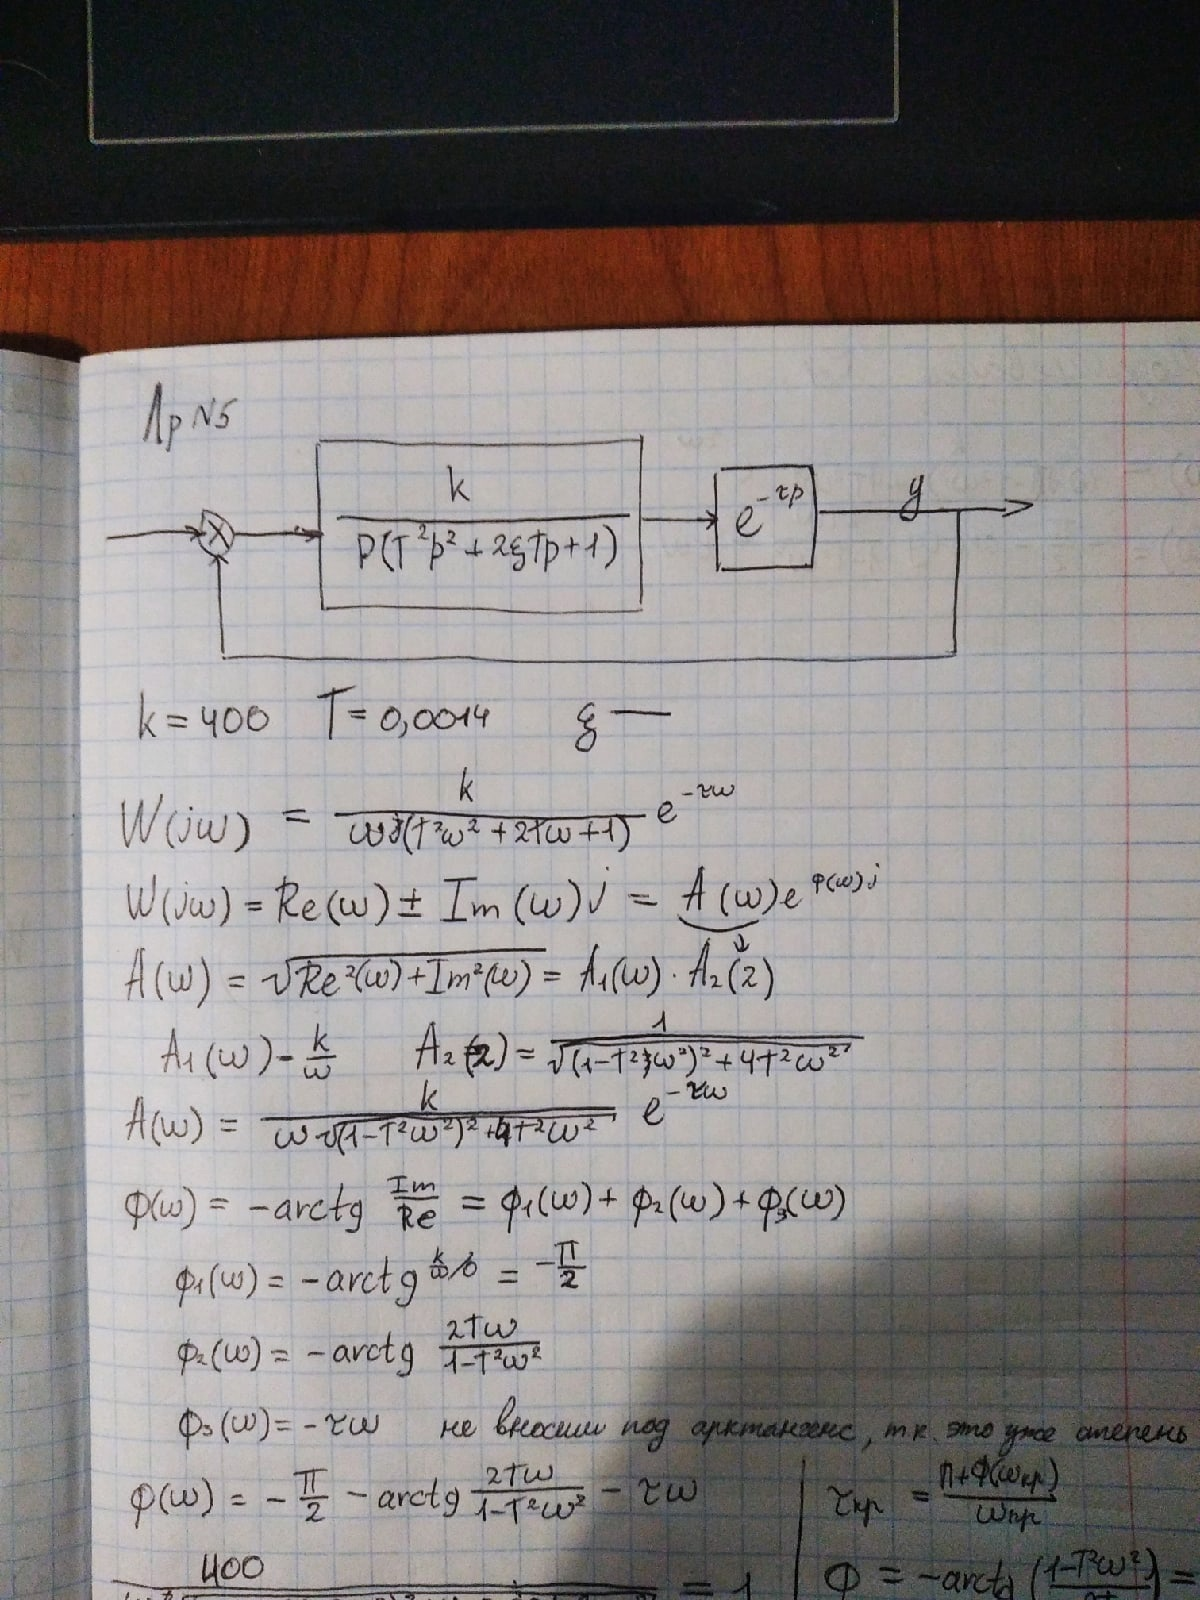 Лр №5
k / p(T²p² + 2ξTp + 1)
e^(-τp)
y
k = 400 T = 0,0014 ξ —
W(jω) = k / ωj(T²ω² + 2Tω + 1) e^(-τω)
W(jω) = Re(ω) ± Im(ω)j = A(ω)e^(φ(ω)j)
A(ω) = √(Re²(ω) + Im²(ω)) = A₁(ω) · A₂(2)
A₁(ω) - k/ω A₂(2) = 1 / √((1-T²ω²)² + 4T²ω²)
A(ω) = k / ω√((1-T²ω²)² + 4T²ω²) e^(-τω)
φ(ω) = -arctg Im/Re = φ₁(ω) + φ₂(ω) + φ₃(ω)
φ₁(ω) = -arctg = -π/2
φ₂(ω) = -arctg 2Tω / 1-T²ω²
φ₃(ω) = -τω не вносим под арктангенс, т.к. это уже степень
φ(ω) = -π/2 - arctg 2Tω / 1-T²ω² - τω
τкр = π+φ(ωкр) / ωкр
400 = 1
φ = -arctg (1-T²ω² =